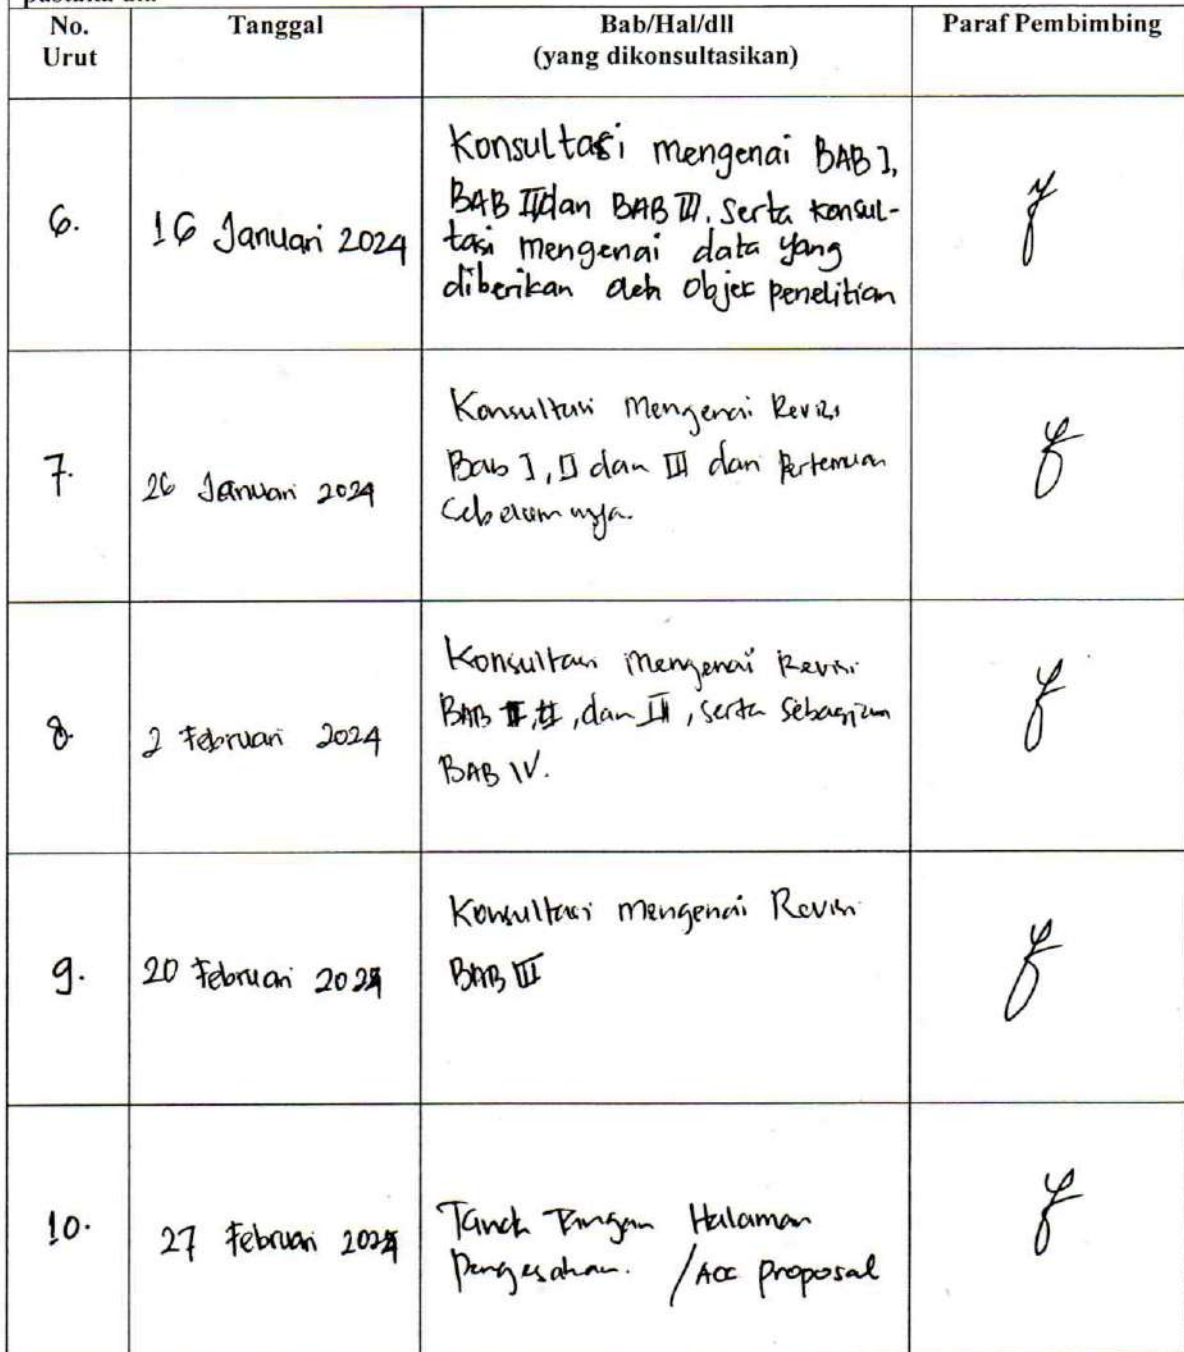 No.
Urut
Tanggal
Bab/Hal/dll
(yang dikonsultasikan)
Paraf Pembimbing
6.
16 Januari 2024
Konsultasi mengenai BAB I,
BAB II dan BAB III, serta konsul-
tasi mengenai data yang
diberikan oleh objek penelitian
7.
26 Januari 2024
Konsultasi Mengenai Revisi
Bab I, II dan III dari Pertemuan
Sebelumnya.
8.
2 Februari 2024
Konsultasi Mengenai Revisi
BAB I, II, dan III, serta Sebagian
BAB IV.
9.
20 Februari 2024
Konsultasi mengenai Revisi
BAB III
10.
27 Februari 2024
Tanda Tangan Halaman
Pengesahan. / Acc proposal